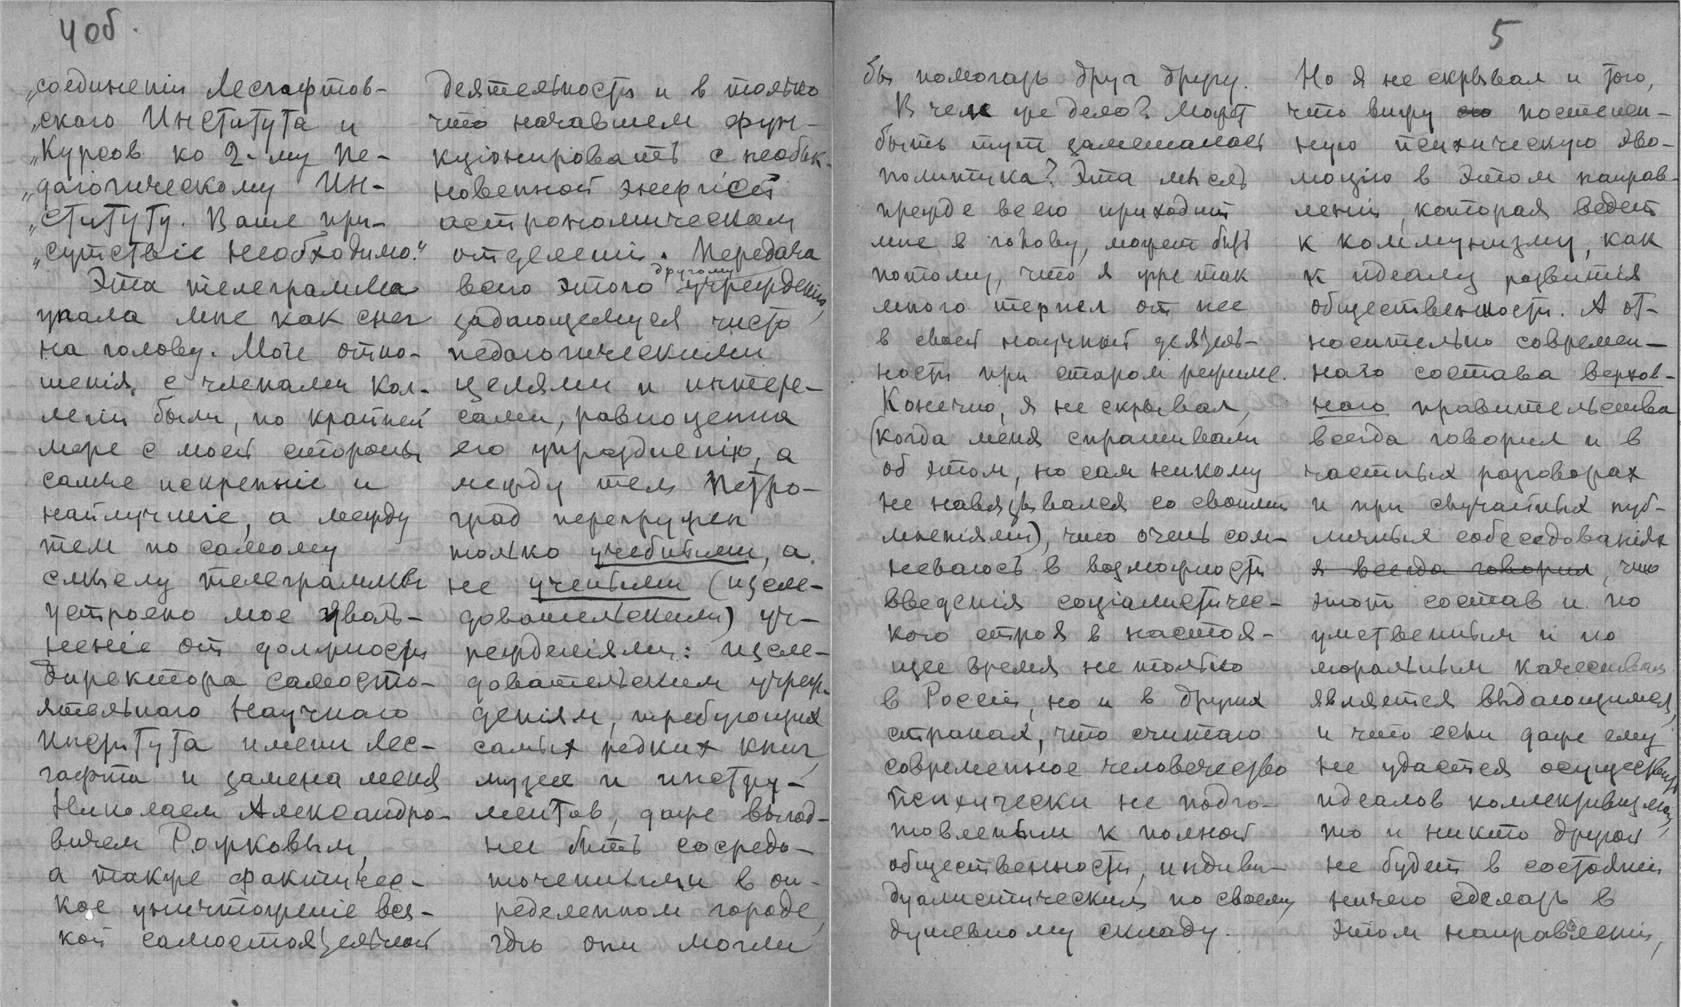 4 об.
„соединеніи Лесгафтов-
„скаго Института и
„Курсов ко 2-му Пе-
„дагогическому Ин-
„ституту. Ваше при-
„сутствіе необходимо."
Эта телеграмма
упала мне как снег
на голову. Мои отно-
шенія с членами Кол-
легіи были, по крайней
мере с моей стороны
самые искренніе и
наилучшіе, а между
тем по самому
смыслу телеграммы
устроено мое уволь-
неніе от должности
директора самосто-
ятельнаго Научнаго
Института имени Лес-
гафта и замена меня
Николаем Александро-
вичем Рожковым,
а также фактичес-
кое уничтоженіе вся-
кой самостоятельной
деятельности и в только
что начавшем фун-
кціонировать с необык-
новенной энергіей
астрономическом
отделеніи. Передача
всего этого другому учрежденію,
задающемуся чисто
педагогическими
целями и интере-
сами, равноценна
его упраздненію, а
между тем Петро-
град перегружен
только учебными, а
не учеными (изсле-
довательскими) уч-
режденіями: изсле-
довательским учреж-
деніям, требующих
самых редких книг,
музеев и инстру-
ментов, даже выгод-
нее быть сосредо-
точенными в оп-
ределенном городе,
где они могли
5
бы помогать друг другу.
В чем же дело? Может
быть тут замешалась
политика? Эта мысль
прежде всего приходит
мне в голову, может быть
потому, что я уже так
много терпел от нее
в своей научной деятель-
ности при старом режиме.
Конечно, я не скрывал,
(когда меня спрашивали
об этом, но сам никому
не навязывался со своими
мненіями), что очень сом-
неваюсь в возможности
введенія соціалистичес-
кого строя в настоя-
щее время не только
в Россіи, но и в других
странах, что считаю
современное человечество
психически не подго-
товленным к полной
общественности, индиви-
дуалистическим по своему
душевному складу.
Но я не скрывал и того,
что вижу постепен-
ную психическую эво-
люцію в этом направ-
леніи, которая ведет
к коммунизму, как
к идеалу развитія
общественности. А от-
носительно современ-
наго состава верхов-
наго правительства
всегда говорил и в
частных разговорах
и при случайных пуб-
личных собеседованіях
я всегда говорил, что
этот состав и по
умственным и по
моральным качествам
является выдающимся,
и что если даже ему
не удастся осуществить
идеалов коллективизма,
то и никто другой
не будет в состояніи
ничего сделать в
этом направленіи,